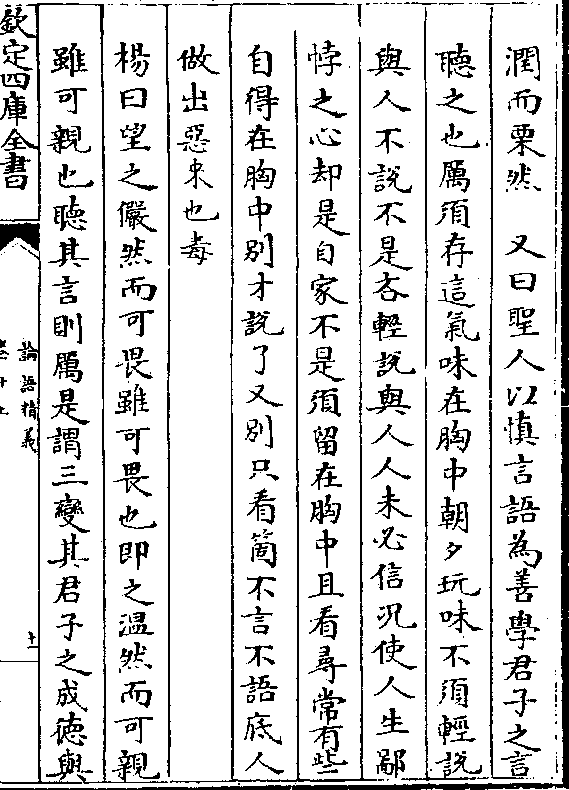 潤而栗然　又曰聖人以慎言語為善學君子之言
聽之也厲須存這氣味在胸中朝夕玩味不須輕說
與人不說不是吝輕說與人人未必信况使人生鄙
悖之心却是自家不是須留在胸中且看尋常有些
自得在胸中別才說了又別只看箇不言不語底人
做出惡来也毒
楊曰望之儼然而可畏雖可畏也即之温然而可親
雖可親也聽其言則厲是謂三變其君子之成徳與
欽定四庫全書
論語精義